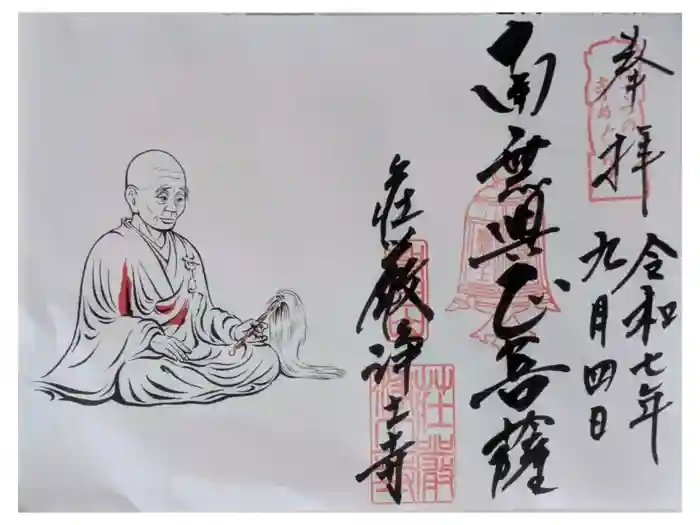 奉拝
令和七年
九月四日
南無興正菩薩
荘厳浄土寺